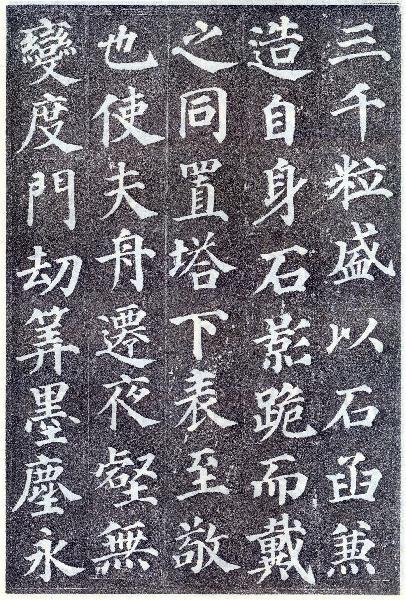 三千粒盛以石函兼
造自身石影跪而戴
之同置塔下表至敬
也使夫舟遷夜壑無
變度門刧筭墨塵永